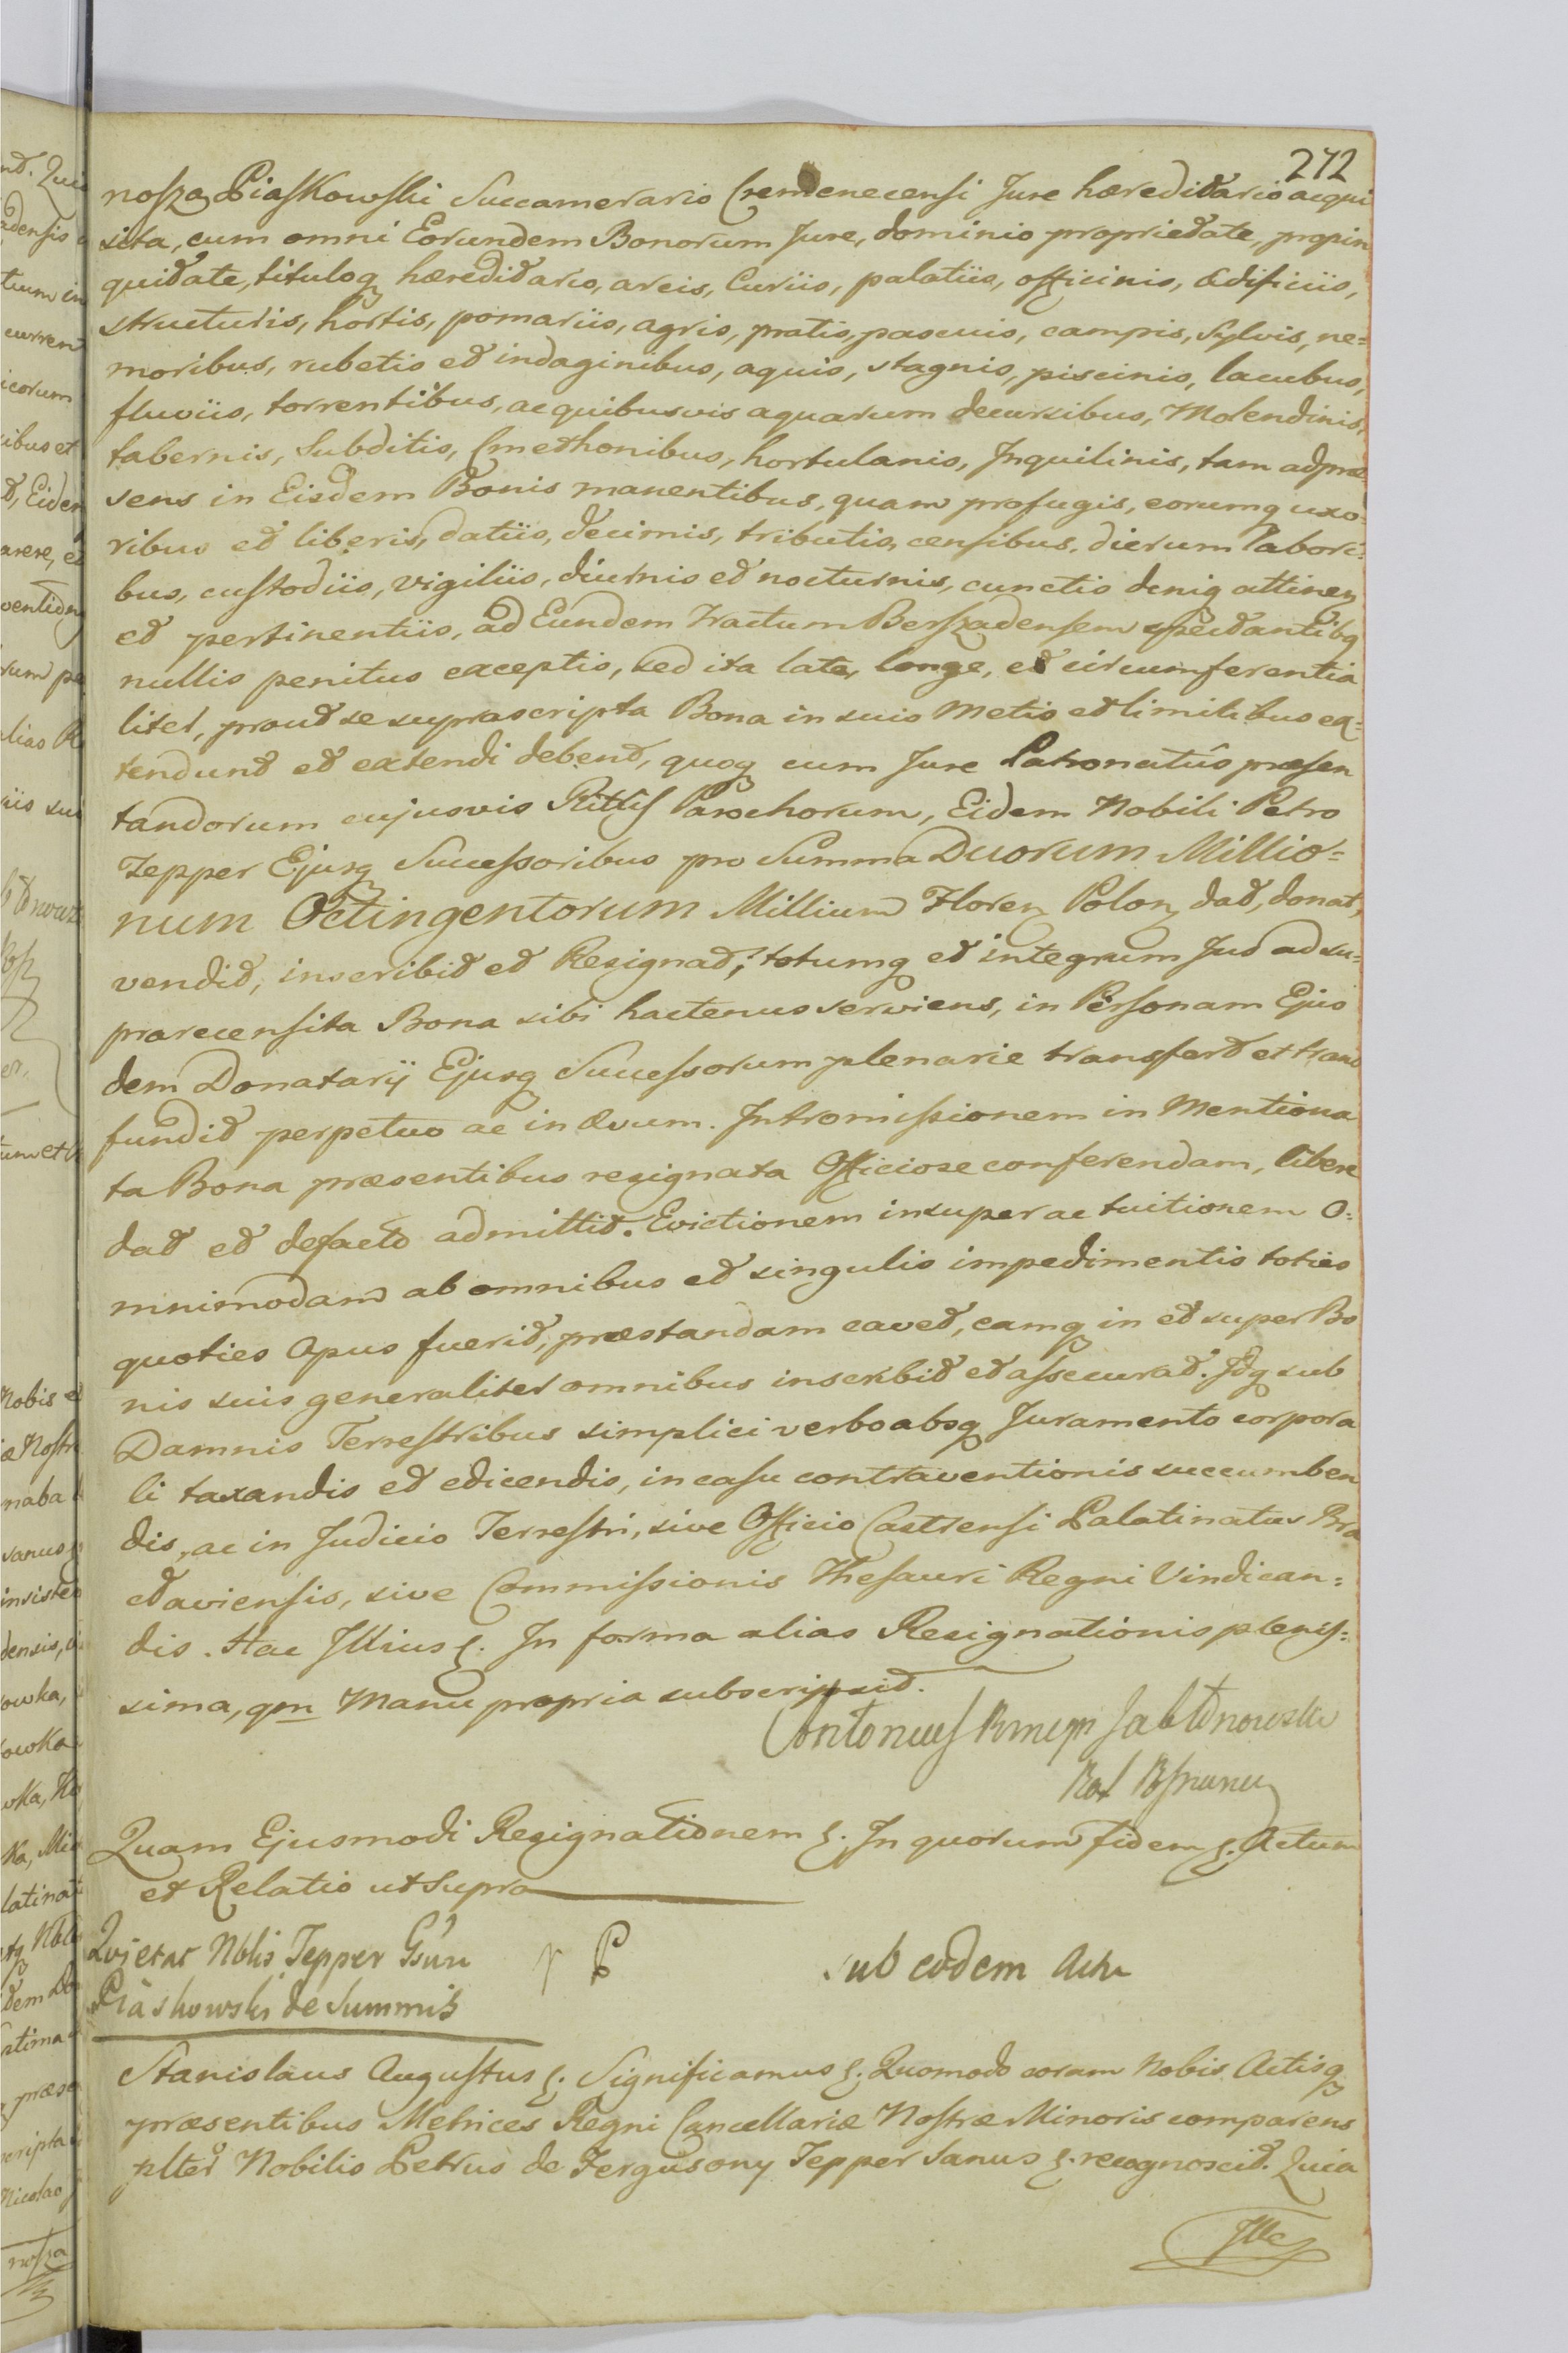 272
nosza Piaskowski Succamerario Cremenecensi Jure hæreditario acqui
sita, cum omni Eorundem Bonorum Jure, dominio proprietate, propin
quitate, tituloq hæreditario, arcis, Curiis, palatiis, officinis, ædificiis,
structuris, hortis, pomariis, agris, pratis, pascuis, campis, Sylvis, ne=
moribus, rubetis et indaginibus, aquis, stagnis, piscinis, lacubus,
fluviis, torrentibus, ac quibusvis aquarum decursibus, Molendinis,
tabernis, Subditis, Cmethonibus, hortulanis, Inquilinis, tam ad præ
sens in Eisdem Bonis manentibus, quam profugis, eorumq uxo=
ribus et liberis, datiis, decimis, tributis, censibus, dierum labori=
bus, custodiis, vigiliis, diurnis et nocturnis, cunctis deniq attinen
et pertinentiis, ad Eundem Tractum Berszadensem spectantibq
nullis penitus exceptis, sed ita late, longe, et circumferentia
liter, prout se suprascripta Bona in suis Metis et limitibus ex=
tendunt et extendi debent, quoq cum Jure Patronatûs præsen
tandorum cujusvis Rittûs Parochorum, Eidem Nobili Petro
Tepper Ejusq Successoribus pro Summa Duorum Millio=
num Octingentorum Millium Floren Polon dat, donat,
vendit, inscribit et Resignat; totumq et integrum Jus ad su=
prarecensita Bona sibi hactenus serviens, in Personam Ejus
dem Donatarij Ejusq Successorum plenarie transfert et trans
fundit perpetuo ac in ævum. Intromissionem in Mentiona
ta Bona præsentibus resignata Officiose conferendam, libere
dat et defacto admittit. Evictionem insuper ac tuitionem O=
mnimodam ab omnibus et singulis impedimentis toties
quoties Opus fuerit, præstandam cavet, eamq in et super Bo
nis suis generaliter omnibus inscribit et assecurat. Idq sub
Damnis Terrestribus simplici verbo absq Juramento corpora
li taxandis et edicendis, in casu contraventionis succumben
dis, ac in Judicio Terrestri, sive Officio Castrensi Palatinatus Bra
claviensis, sive Commissionis Thesauri Regni Vindican=
dis. Hac Illius . In forma alias Resignationis plenis=
sima, qm Manu propria subscripsit.
Antonius Jabłonowski
Quam Ejusmodi Resignationem . In quorum fidem . Actum
et Relatio ut Supra
Quietat Nblis Tepper Gsum
Piaskowski de Summis
sub eodem Actu
Stanislaus Augustus . Significamus . Quomodo coram Nobis Actisq
præsentibus Metrices Regni Cancellariæ Nostræ Minoris comparens
plter Nobilis Petrus de Fergusony Tepper Sanus . recognoscit. Quia
Ille